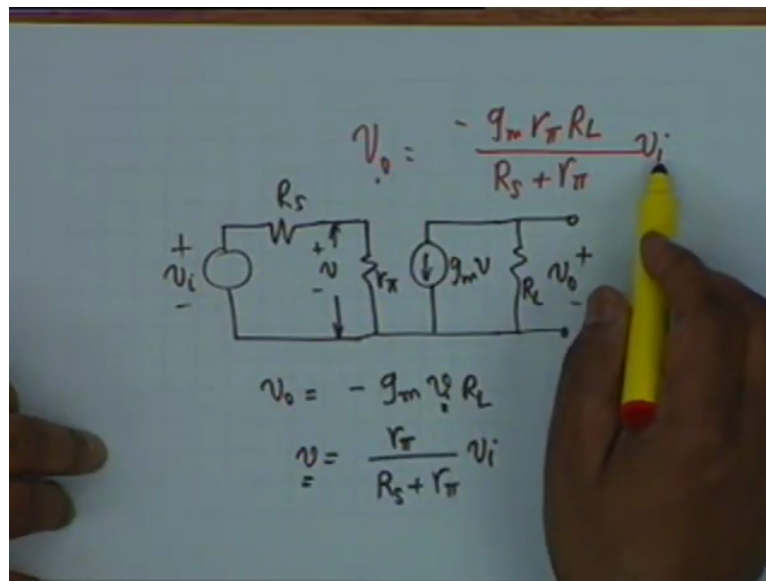 v₀ = - gₘ r_π R_L / (R_S + r_π) vᵢ
R_S
+ vᵢ -
+ v -
r_π
gₘv
R_L
v₀ + -
v₀ = - gₘ v R_L
v = r_π / (R_S + r_π) vᵢ